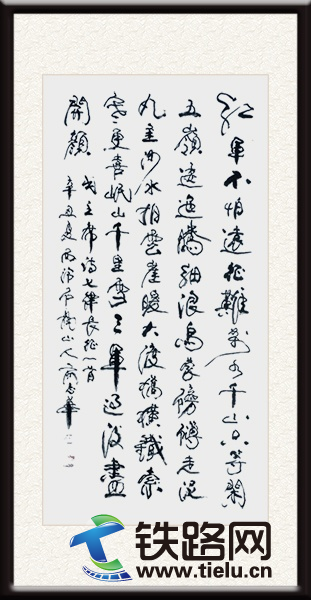 红軍不怕遠征難万水千山只等閑
五嶺逶迤騰細浪烏蒙磅礴走泥
丸金沙水拍雲崖暖大渡橋橫鐵索
寒更喜岷山千里雪三軍过後盡
開顏
毛主席詩七律長征一首
辛丑夏 山人 志華
铁路网
www.tielu.cn